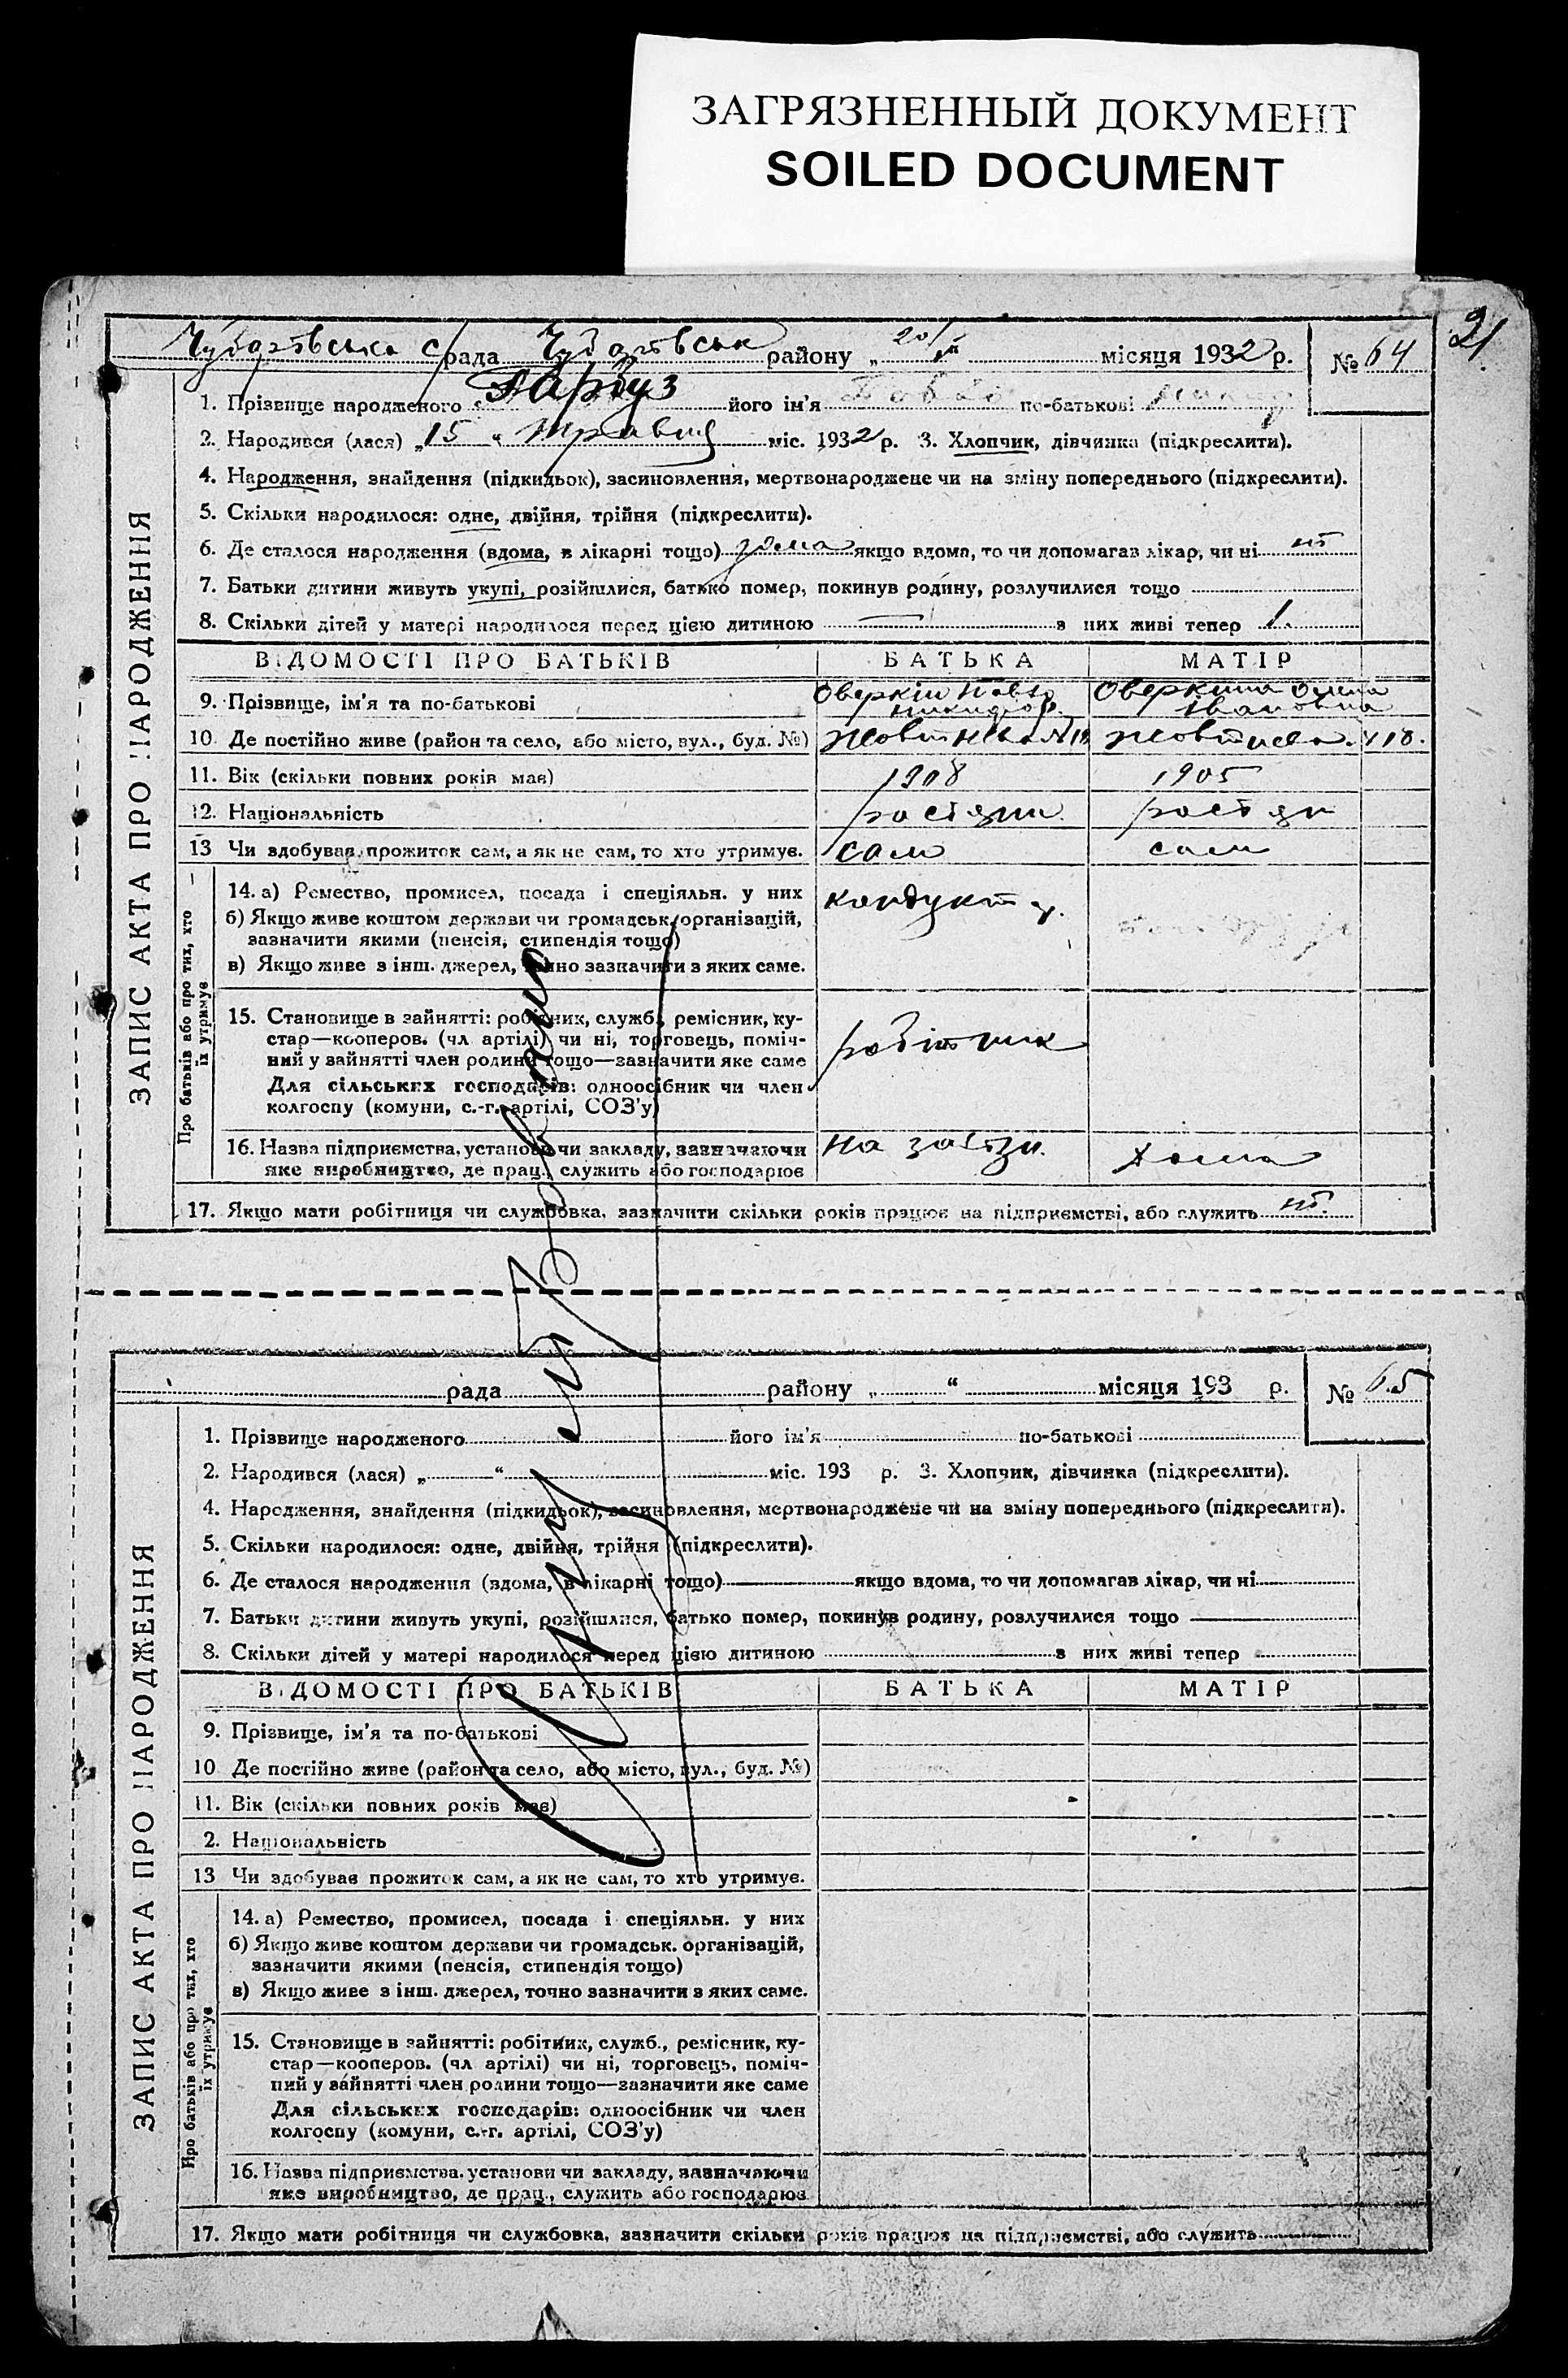 ЗАГРЯЗНЕННЫЙ ДОКУМЕНТ
SOILED DOCUMENT
21
рада району „ місяця 1932 р. № 64
ЗАПИС АКТА ПРО НАРОДЖЕННЯ
1. Прізвище народженого його ім'я по-батькові
2. Народився (лася) „15“ Травня міс. 1932 р. 3. Хлопчик, дівчинка (підкреслити).
4. Народження, знайдення (підкидьок), засиновлення, мертвонароджене чи на зміну попереднього (підкреслити).
5. Скільки народилося: одне, двійня, трійня (підкреслити).
6. Де сталося народження (вдома, в лікарні тощо) дома якщо вдома, то чи допомагав лікар, чи ні ні
7. Батьки дитини живуть укупі, розійшлися, батько помер, покинув родину, розлучилися тощо
8. Скільки дітей у матері народилося перед цією дитиною — з них живі тепер 1.
ВІДОМОСТІ ПРО БАТЬКІВ БАТЬКА МАТІР
9. Прізвище, ім'я та по-батькові Івановна
10. Де постійно живе (район та село, або місто, вул., буд. №)
11. Вік (скільки повних років має) 1908 1905
12. Національність
13 Чи здобував прожиток сам, а як не сам, то хто утримує. сам сам
Про батьків або про тих, хто
їх утримує
14. а) Ремество, промисел, посада і спеціяльн. у них
б) Якщо живе коштом держави чи громадськ. організацій,
зазначити якими (пенсія, стипендія тощо)
в) Якщо живе з інш. джерел, точно зазначити з яких саме.
кондукт
15. Становище в зайнятті: робітник, служб., ремісник, ку-
стар—кооперов. (чл артілі) чи ні, торговець, поміч-
ний у зайнятті член родини тощо—зазначити яке саме
Для сільських господарів: одноосібник чи член
колгоспу (комуни, с.-г. артілі, СОЗ'у)
робітник
16. Назва підприємства, установи чи закладу, зазначаючи
яке виробництво, де прац., служить або господарює
дома
17. Якщо мати робітниця чи службовка, зазначити скільки років працює на підприємстві, або служить ні.
рада району „ “ місяця 193 р. № 65
ЗАПИС АКТА ПРО НАРОДЖЕННЯ
1. Прізвище народженого його ім'я по-батькові
2. Народився (лася) „ “ міс. 193 р. 3. Хлопчик, дівчинка (підкреслити).
4. Народження, знайдення (підкидьок), засиновлення, мертвонароджене чи на зміну попереднього (підкреслити).
5. Скільки народилося: одне, двійня, трійня (підкреслити).
6. Де сталося народження (вдома, в лікарні тощо) якщо вдома, то чи допомагав лікар, чи ні
7. Батьки дитини живуть укупі, розійшлися, батько помер, покинув родину, розлучилися тощо
8. Скільки дітей у матері народилося перед цією дитиною з них живі тепер
ВІДОМОСТІ ПРО БАТЬКІВ БАТЬКА МАТІР
9. Прізвище, ім'я та по-батькові
10 Де постійно живе (район та село, або місто, вул., буд. №)
11. Вік (скільки повних років має)
2. Національність
13 Чи здобував прожиток сам, а як не сам, то хто утримує.
Про батьків або про тих, хто
їх утримує
14. а) Ремество, промисел, посада і спеціяльн. у них
б) Якщо живе коштом держави чи громадськ. організацій,
зазначити якими (пенсія, стипендія тощо)
в) Якщо живе з інш. джерел, точно зазначити з яких саме.
15. Становище в зайнятті: робітник, служб., ремісник, ку-
стар—кооперов. (чл артілі) чи ні, торговець, поміч-
ний у зайнятті член родини тощо—зазначити яке саме
Для сільських господарів: одноосібник чи член
колгоспу (комуни, с.-г. артілі, СОЗ'у)
16. Назва підприємства, установи чи закладу, зазначаючи
яке виробництво, де прац., служить або господарює
17. Якщо мати робітниця чи службовка, зазначити скільки років працює на підприємстві, або служить